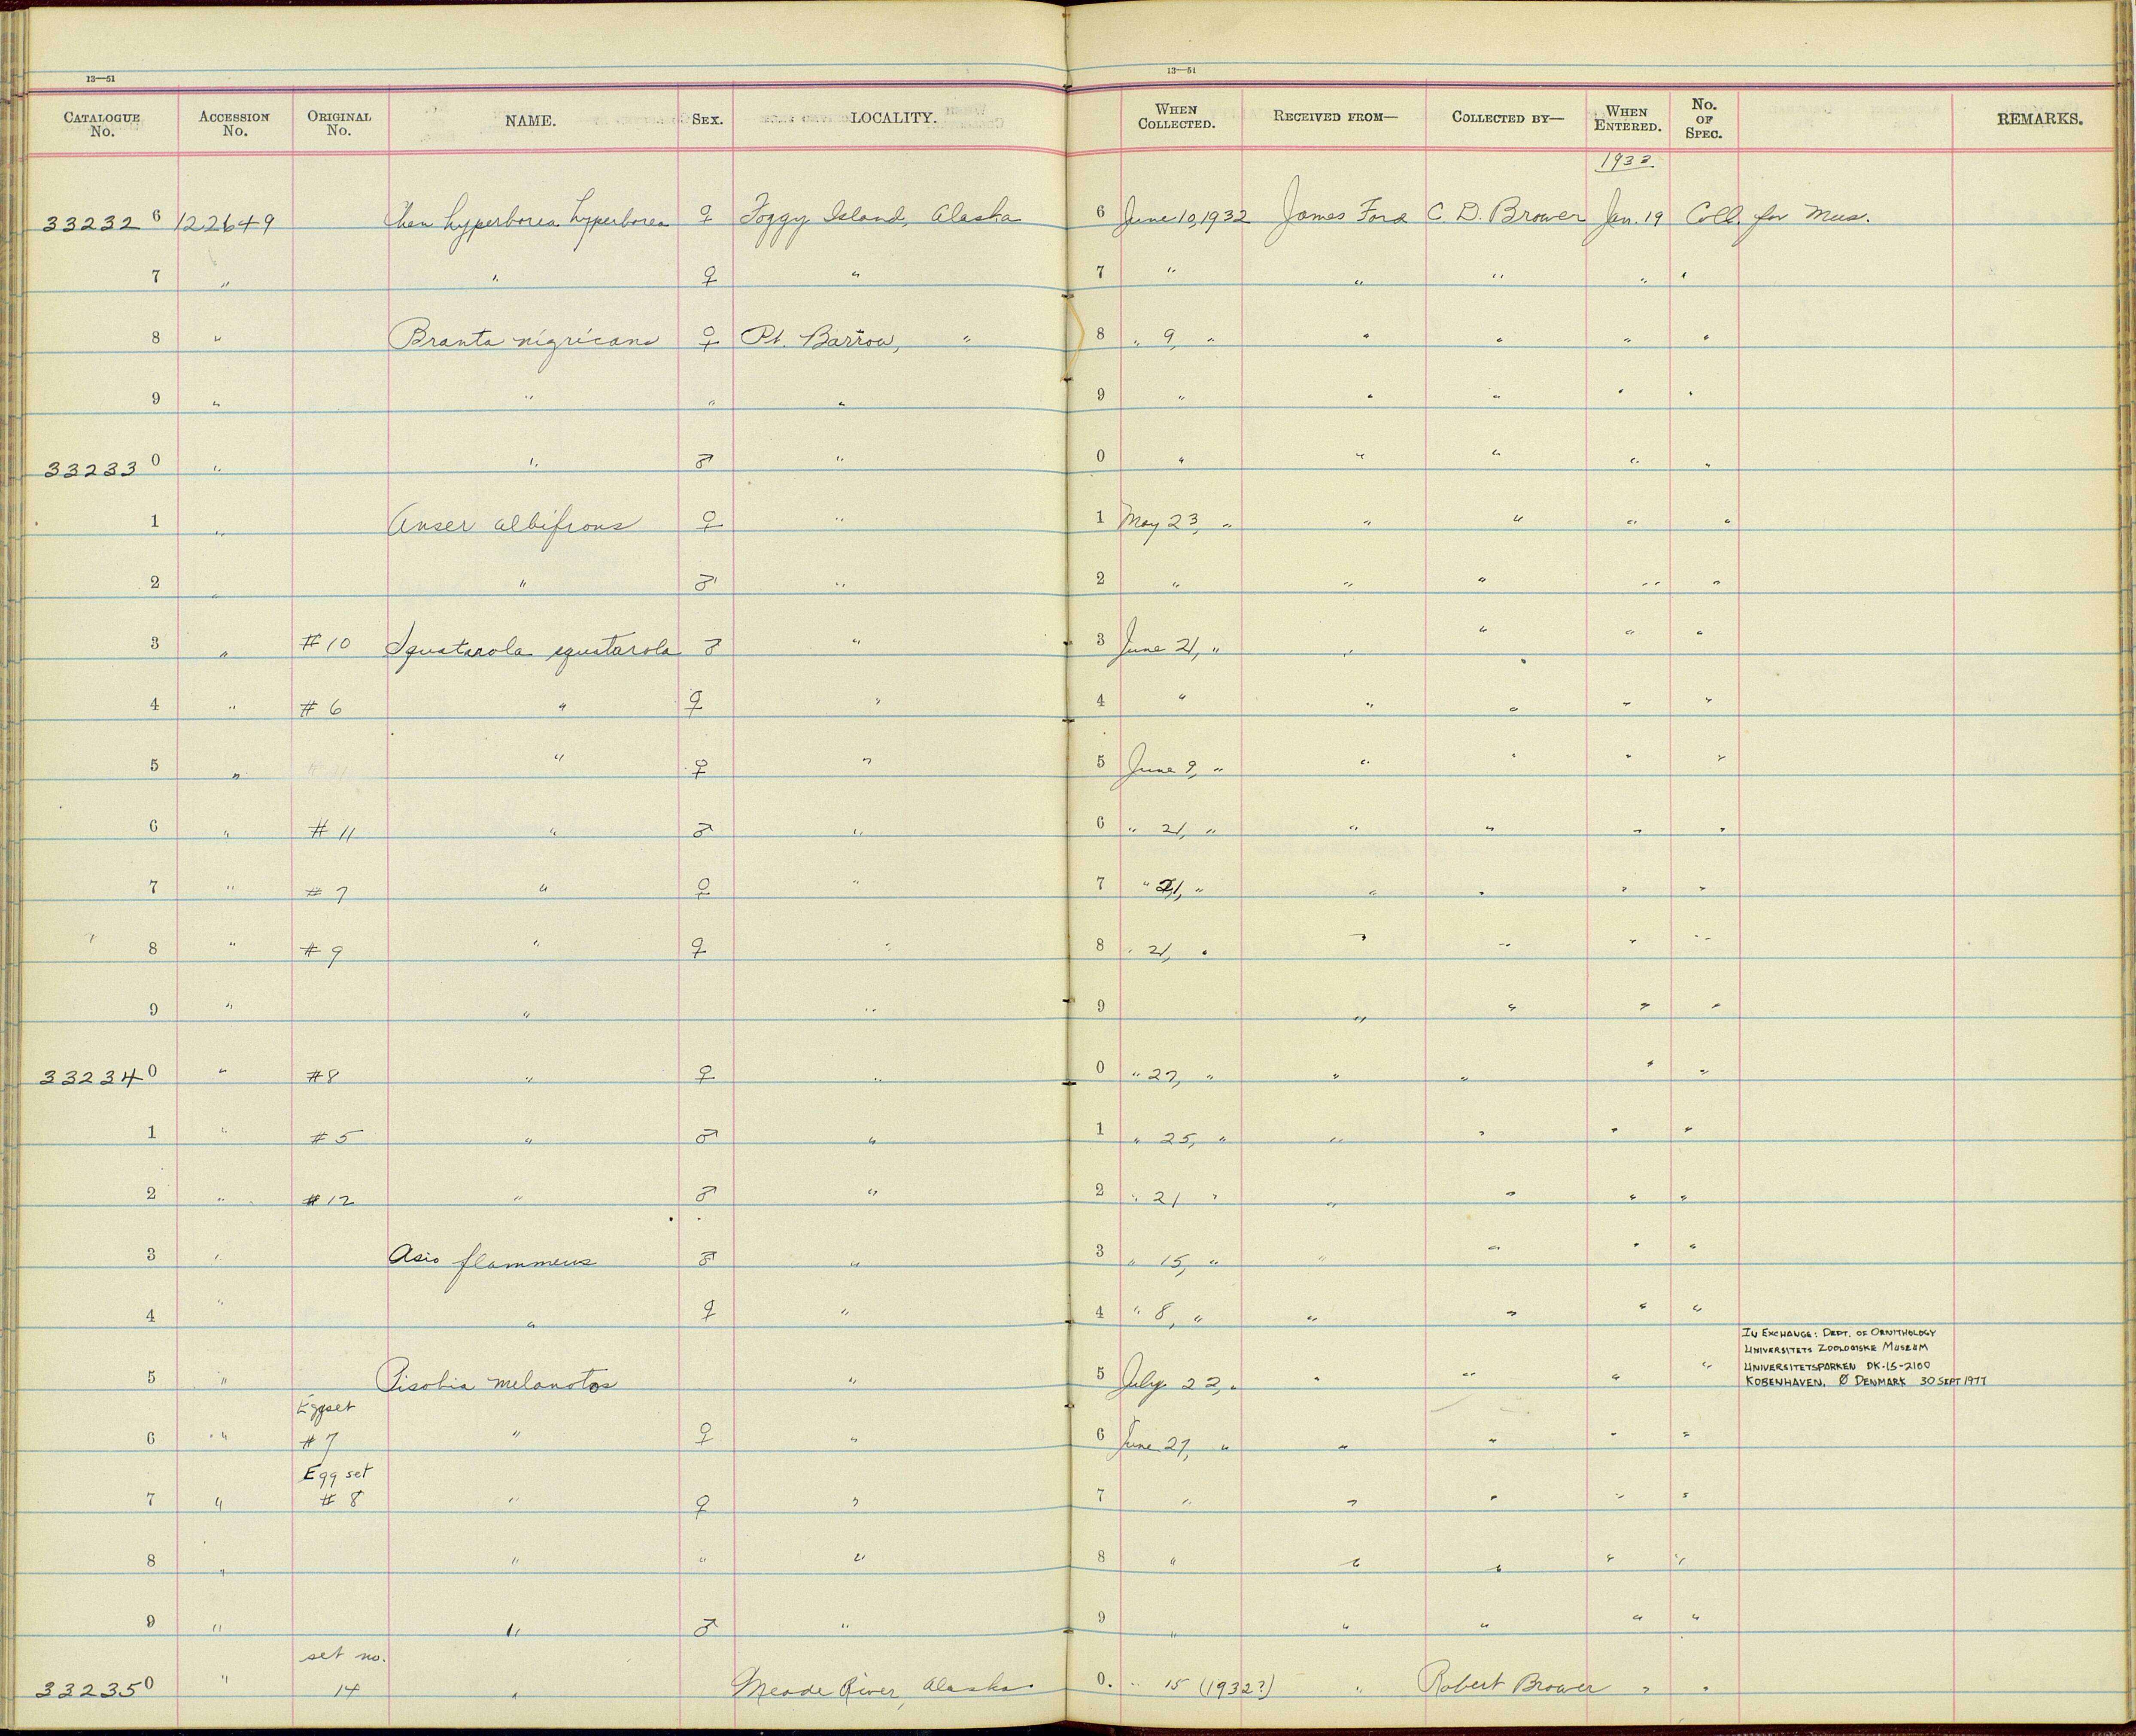 13—51 13—51
CATALOGUE No. ACCESSION No. ORIGINAL No. NAME. SEX. LOCALITY. WHEN COLLECTED. RECEIVED FROM— COLLECTED BY— WHEN ENTERED. No. OF SPEC. REMARKS.
1933
33232 6 122649 Chen hyperborea hyperborea ♀ Foggy Island, Alaska 6 June 10, 1932 James Ford C. D. Brower Jan. 19 Coll. for Mus.
7 " " ♀ " 7 " " " " "
8 " Branta nigricans ♀ Pt. Barrow, " 8 " 9, " " " " "
9 " " " " 9 " " " " "
33233 0 " " ♂ " 0 " " " " "
1 " Anser albifrons ♀ " 1 May 23, " " " " "
2 " " ♂ " 2 " " " " "
3 " #10 Squatarola squatarola ♂ " 3 June 21, " " " " "
4 " #6 " ♀ " 4 " " " " "
5 " " ♀ " 5 June 9, " " " " "
6 " #11 " ♂ " 6 " 21, " " " " "
7 " #7 " ♀ " 7 " 21, " " " " "
8 " #9 " ♀ " 8 " 21, " " " " "
9 " " " 9 " " " "
33234 0 " #8 " ♀ " 0 " 27, " " " " "
1 " #5 " ♂ " 1 " 25, " " " " "
2 " #12 " ♂ " 2 " 21 " " " " "
3 " Asio flammeus ♂ " 3 " 15, " " " " "
4 " " ♀ " 4 " 8, " " " " "
IN EXCHANGE: DEPT. OF ORNITHOLOGY
UNIVERSITETS ZOOLOGISKE MUSEUM
5 " Pisobia melanotos " 5 July 22, " " " " " UNIVERSITETSPARKEN DK-15-2100
KOBENHAVEN, Ø DENMARK 30 SEPT 1977
Eggset
6 " #7 " ♀ " 6 June 27, " " " " "
Egg set
7 " #8 " ♀ " 7 " " " " "
8 " " " " 8 " " " " "
9 " " ♂ " 9 " " " " "
set no.
33235 0 " 14 " Meade River, Alaska 0 " 15 (1932?) " Robert Brower " "